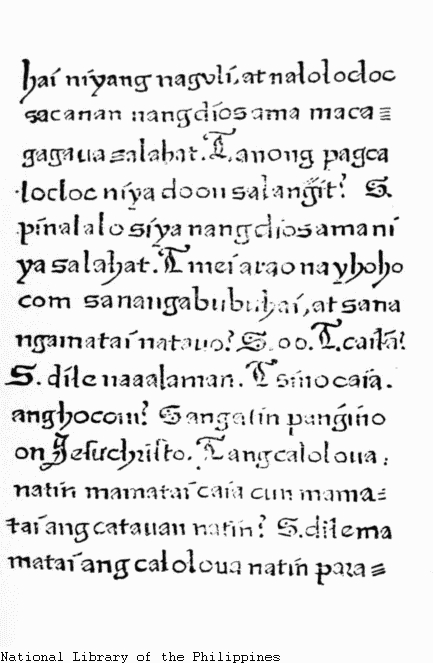 hai niyang naguli, at nalolocloc
sacanan nangdios ama maca=
gagaua salahat. T. anong pagca
locloc niya doon salangit? S.
pinalalo siya nangdios ama ni
ya salahat. T mei arao na yhoho
com sanangabubuhai, at sana
ngamatai natauo? S. oo. T. cailã?
S. dile naaalaman. T sino caia.
anghocom? S angatin pangino
on Jesuchristo. T angcaloloua,
natin mamatai caia cun mama=
tai ang catauan natin? S. dile ma
matai ang caloloua natin para=
National Library of the Philippines